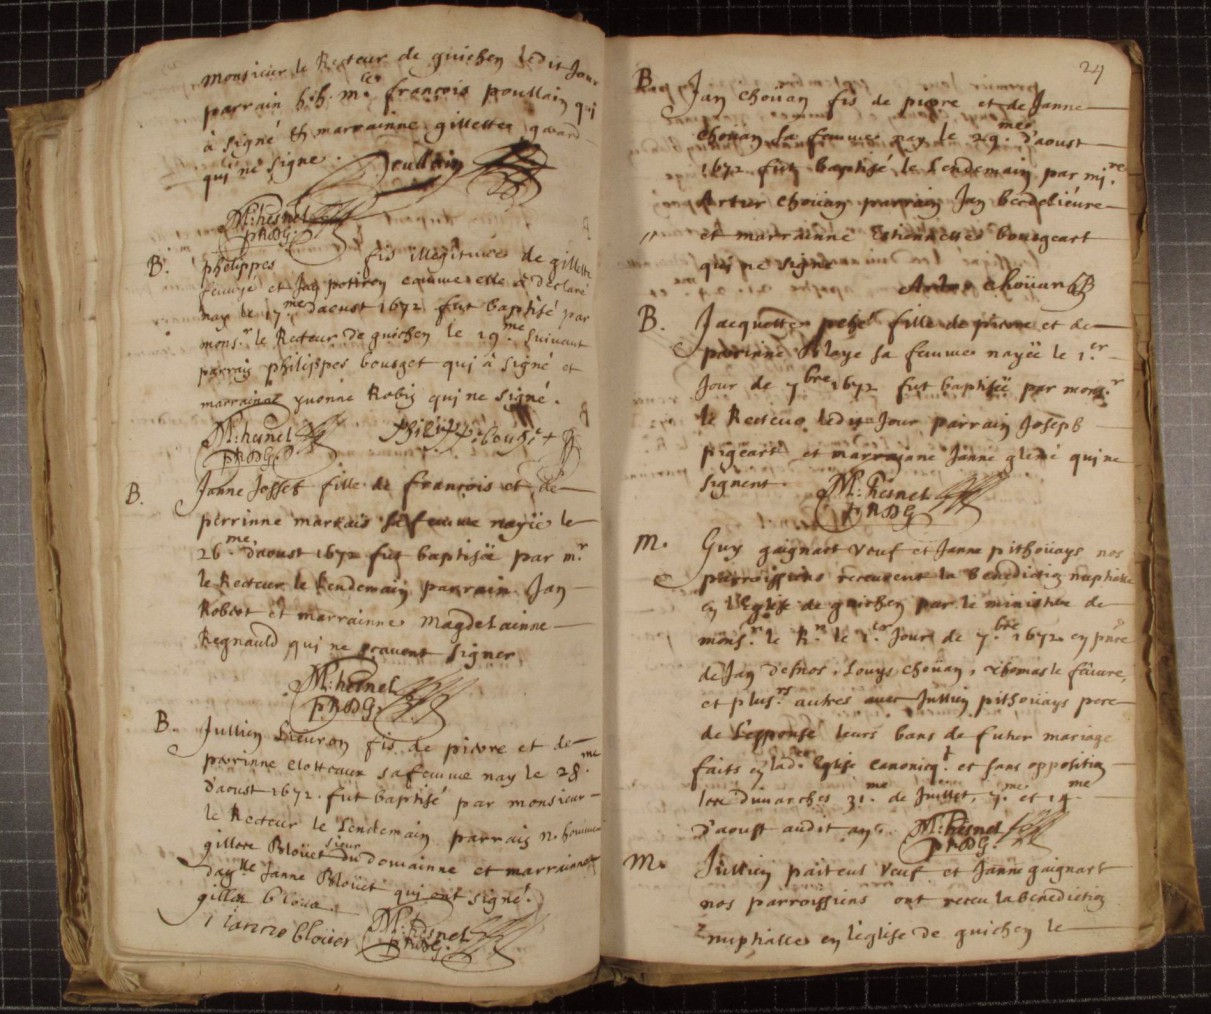 Monsieur le Recteur de guichen ledit Jour
parrain h.h. mi.re françois poullain qui
à signé et marrainne gillette
qui ne signe. Poullain
M: hesnel
PRDG.
B. philippes fis illegitime de gillette
et Jan comme elle à declaré
nay le 17.me daoust 1672 fut baptisé par
mons.r le Recteur de guichen le 19.me suivant
parrain philippes bouget qui à signé et
marrainne yvonne Robin qui ne signé.
M: hesnel
PRDG
B. Janne Josset fille de françois et de
perrinne marcais sa femme nayëe le
26.me daoust 1672 fut baptisëe par m.r
le Recteur le Lendemain parrain Jan
Robert et marrainne Magdelainne
Regnauld qui ne peuvent signer
M: hesnel
PRDG.
B. Jullien fis de pierre et de
perrinne clotteaux sa femme nay le 28.me
d'aoust 1672. fut baptisé par monsieur
le Recteur le Lendemain parrain n. homme
gilles Blouët sieur du domainne et marrainne
dam.lle Janne Blouët qui ont signé.
gilles bloüet
Janne bloüet M: hesnel
PRDG.
24
B. Jan Choüan fis de pierre et de Janne
Choüan sa femme nay le 29.me d'aoust
1672 fut baptisé le Lendemain par mi.re
Artur Choüan parrain Jan berdelieure
et marrainne Estiennette bourgeart
qui ne signe
Artur Choüan
B. Jacquette fille de pierre et de
perrinne Blaye sa femme nayëe le 1.er
Jour de 7bre 1672 fut baptisëe par mons.r
le Recteur ledit Jour parrain Joseph
pigeart et marrainne Janne glemé qui ne
signent. M: hesnel
PRDG
M. Guy gaignart veuf et Janne pithoüays nos
parroissiens receurent la benediction nuptialle
en l'Eglise de guichen par le ministere de
mons.r le R.r le 1.er Jour de 7.bre 1672 en pnce
de Jan desnos, Louys Choüan, thomas le faiure,
et plus.rs autres avec Jullien pithoüays pere
de l'espouse leurs bans de futur mariage
faits en lad. Eglise canonicq.t et sans opposition
les dimanches 31.me de Juillet, 7.me et 14.me
d'aoust audit an. M: hesnel
PRDG
M. Jullien paiteul veuf et Janne gaignart
nos parroissiens ont receu la benediction
nuphalle en l'eglise de guichen le